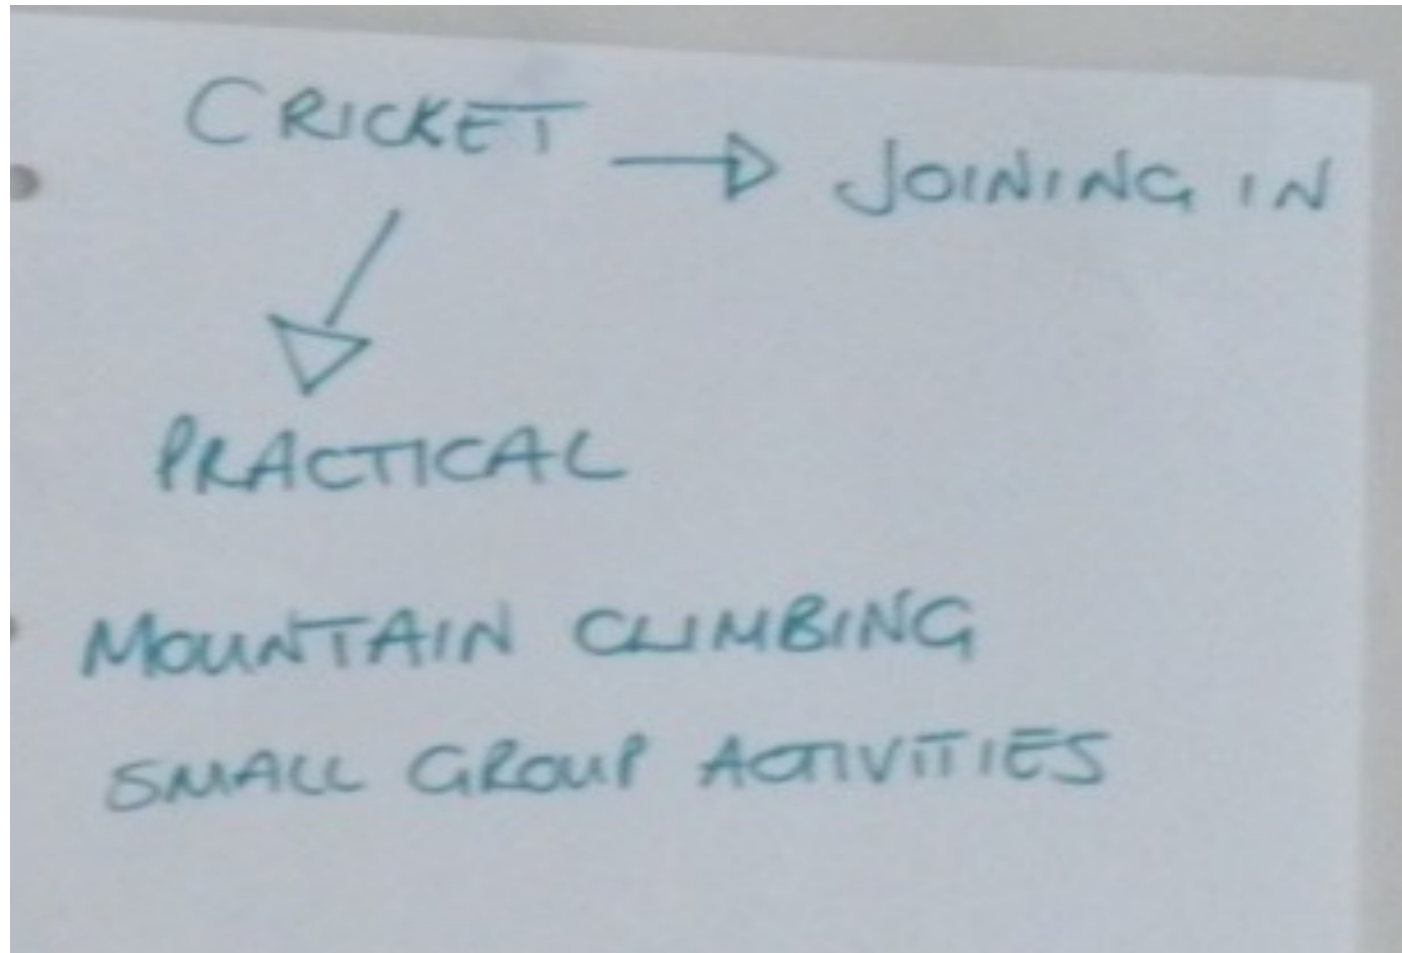 CRICKET
JOINING IN
PRACTICAL
MOUNTAIN CLIMBING
SMALL GROUP ACTIVITIES